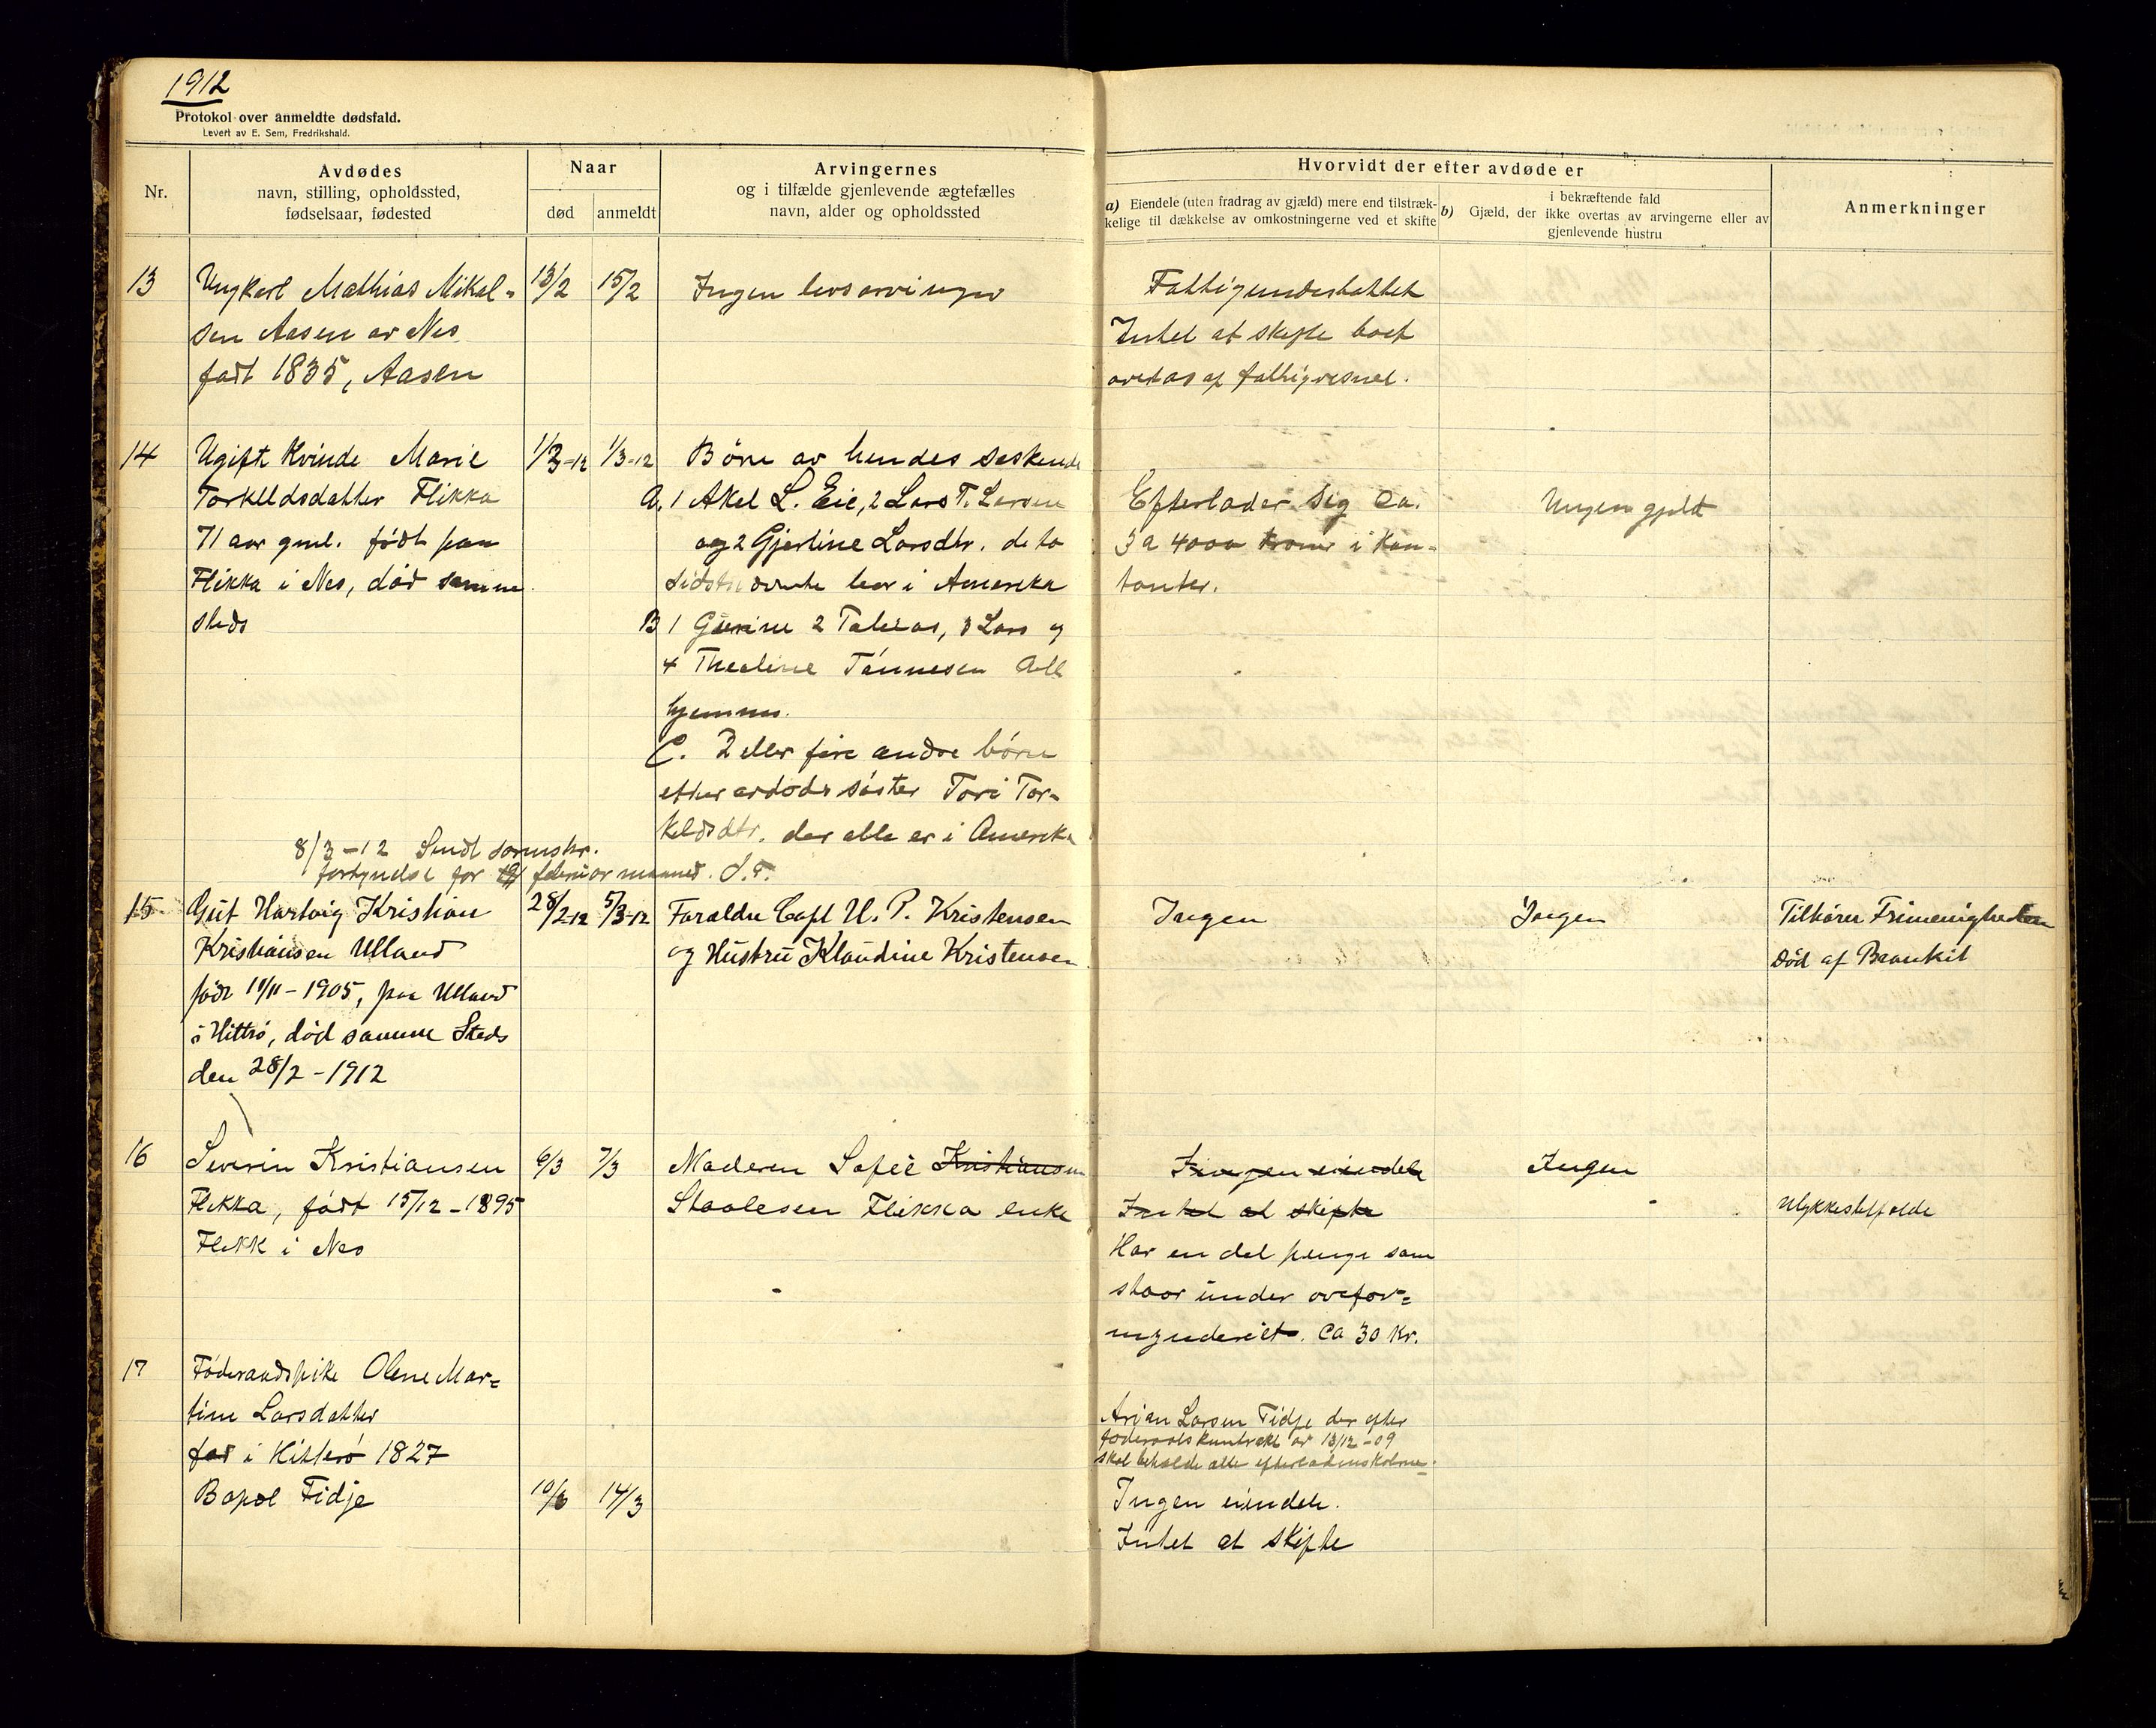 1912
Protokol over anmeldte dødsfald.
Levert av E. Sem, Fredrikshald.
Nr.
Avdødes
navn, stilling, opholdssted,
fødselsaar, fødested
Naar
død
anmeldt
Arvingernes
og i tilfælde gjenlevende ægtefælles
navn, alder og opholdssted
Hvorvidt der efter avdøde er
a) Eiendele (uten fradrag av gjæld) mere end tilstræk-
kelige til dækkelse av omkostningerne ved et skifte
b) Gjæld, der
i bekræftende fald
ikke overtas av arvingerne eller av
gjenlevende hustru
Anmerkninger
13
Ungkarl Mathias Mikal-
sen Aasen av Nes
født 1835, Aasen
13/2
15/2
Ingen livsarvinger
Fattigunderstøttet
Intet at skifte boet
overtas af fattigvesnet.
14
Ugift Kvinde Marie
Torkeldsdatter Flikka
71 aar gml. født paa
Flikka i Nes, død samme
steds
1/3-12
1/3-12
Børn av hendes søskende
A. 1 Akel L. Eie, 2 Lars T. Larsen
og 2 Gjertine Larsdtr. de to
sidstnævnte bor i Amerika
B 1 Gurine 2 Tobias, 3 Lars og
4 Thealine Tønnesen Alle
hjemme.
C. 2 eller fire andre børn
etter avdødes søster Tori Tor-
keldsdtr. der alle er i Amerika
Efterlader sig ca.
3 a 4000 kroner i kon-
tanter.
Ingen gjeld
8/3-12 Sendt sorenskr.
fortegnelse for februar maaned. S.F.
15
Gut Hartvig Kristian
Kristiansen Ulland
født 11/11-1905, paa Ulland
i Hitterø, død samme Steds
den 28/2-1912
28/2-12
5/3-12
Forældre Capt H. P. Kristensen
og Hustru Klaudine Kristensen
Ingen
Ingen
Tilhører Frimenigheden
Død af Bronkit
16
Severin Kristiansen
Flikka, født 15/12-1895
Flikk i Nes
6/3
7/3
Moderen Sofie Kristiansen
Staalesen Flikka enke
Ingen eiendele
Intet at skifte
Har en del penge som
staar under overfor-
mynderiet. Ca 30 Kr.
Ingen
Ulykkestilfælde
17
Føderaadspike Olene Mar-
tine Larsdatter
fød i Hitterø 1827
Bopæl Fidje
10/3
14/3
Arian Larsen Fidje der efter
føderaadskontrakt av 13/12-09
skal beholde alle efterladenskaberne.
Ingen eiendele.
Intet at skifte